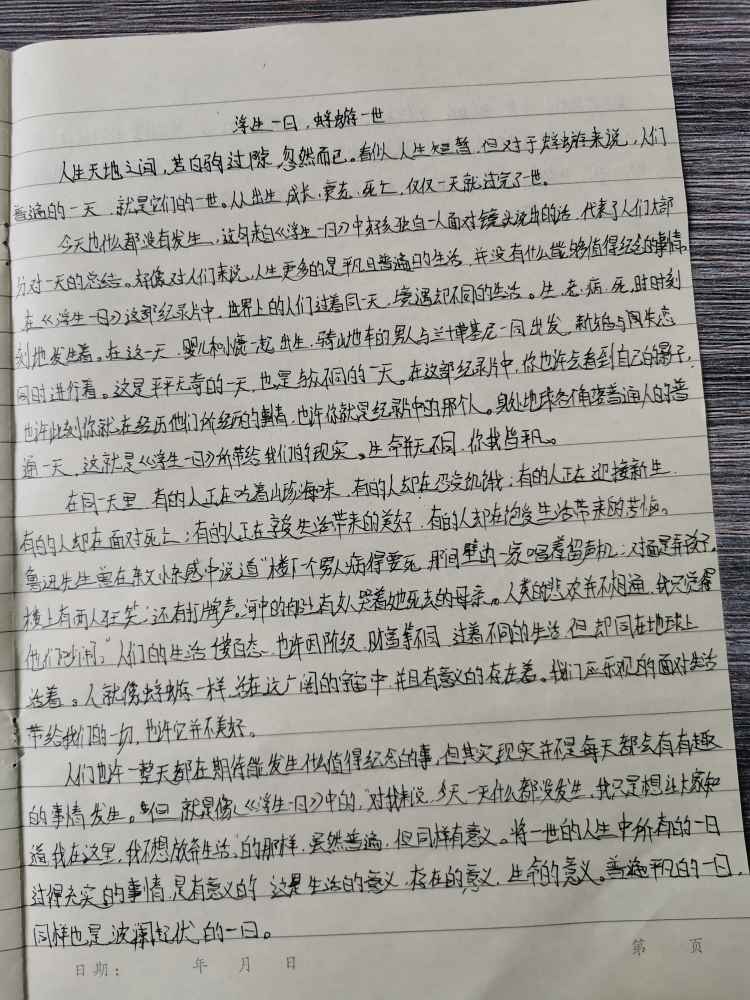 浮生一日，蜉蝣一世
人生天地之间，若白驹过隙，忽然而已。看似人生短暂，但对于蜉蝣来说，人们
普遍的一天，就是它们的一世。从出生，成长，衰老，死亡，仅仅一天就过完了一世。
今天也什么都没有发生，这句来自《浮生一日》中好独自一人面对镜头说出的话，代表了人们大部
分对一天的总结。好像对人们来说，人生更多的是平凡且普遍的生活，并没有什么能够值得纪念的事情。
在《浮生一日》这部纪录片中，世界上的人们过着同一天，境遇却不同的生活。生，老，病，死，时时刻
刻地发生着。在这一天，婴儿和小鹿一起出生，骑山地车的男人与兰博基尼一同出发，新婚与同失恋
同时进行着。这是平平无奇的一天，也是与众不同的一天。在这部纪录片中，你也许会看到自己的影子，
也许此刻你就在经历他们所经历的事情，也许你就是纪录片中的那个人。身处地球各个角落普通人的普
通一天，这就是《浮生一日》所带给我们的现实。生命并无不同，你我皆平凡。
在同一天里，有的人正在吃着山珍海味，有的人却在忍受饥饿；有的人正在迎接新生，
有的人却在面对死亡；有的人正在享受生活带来的美好，有的人却在饱受生活带来的苦恼。
鲁迅先生曾在杂文小杂感中说道“楼下个男人病得要死，那间壁的一家唱着留声机；对面是弄孩子，
楼上有两人狂笑；还有打牌声。河中的船上有女人哭着她死去的母亲。人类的悲欢并不相通，我只觉得
他们吵闹。”人们的生活千姿百态，也许因阶级，财富等不同，过着不同的生活，但却同在地球上
活着。人就像蜉蝣一样，总在这广阔的宇宙中，并且有意义的存在着。我们应乐观的面对生活
带给我们的一切，也许它并不美好。
人们也许一整天都在期待能发生什么值得纪念的事，但其实现实并不是每天都会有有趣
的事情发生。但就是像《浮生一日》中的，“对我来说，今天一天什么都没发生，我只是想让大家知
道我在这里，我不想放弃生活”的那样，虽然普遍，但同样有意义。将一世的人生中所有的一日
过得充实的事情，是有意义的，这是生活的意义，存在的意义，生命的意义。普遍平凡的一日，
同样也是波澜起伏的一日。
日期： 年 月 日 第 页